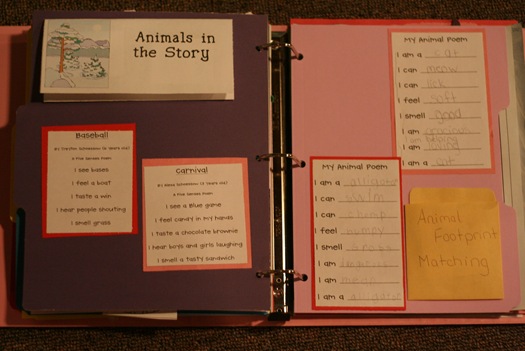 Animals in
the Story
Baseball
A Five Senses Poem
I see bases
I feel a boat
I taste a win
I hear people shouting
I smell grass
Carnival
A Five Senses Poem
I see a Blue game
I feel candy in my hands
I taste a chocolate brownie
I hear boys and girls laughing
I smell a tasty sandwich
My Animal Poem
I am a cat
I can meow
I can lick
I feel soft
I smell good
I am
I am
I am a cat
My Animal Poem
I am a alligator
I can
I can chomp
I feel bumpy
I smell
I am
I am mean
I am a alligator
Animal
Footprint
Matching